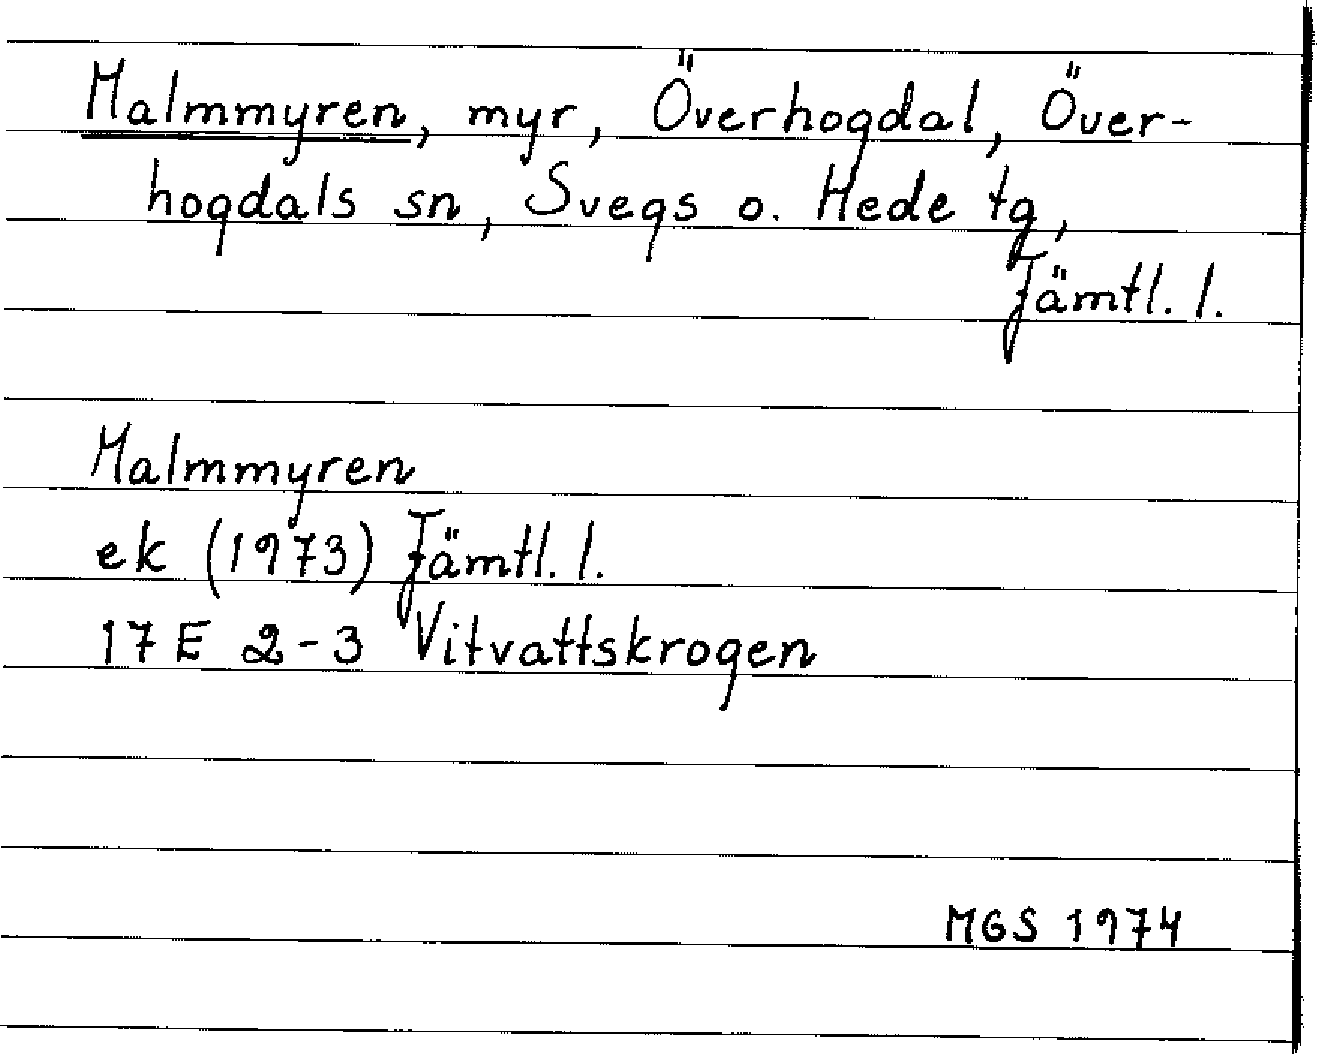 Malmmyren, myr, Överhogdal, Över-
hogdals sn, Svegs o. Hede tg,
Jämtl. l.
Malmmyren
ek (1973) Jämtl. l.
17E 2-3 Vitvattskrogen
MGS 1974